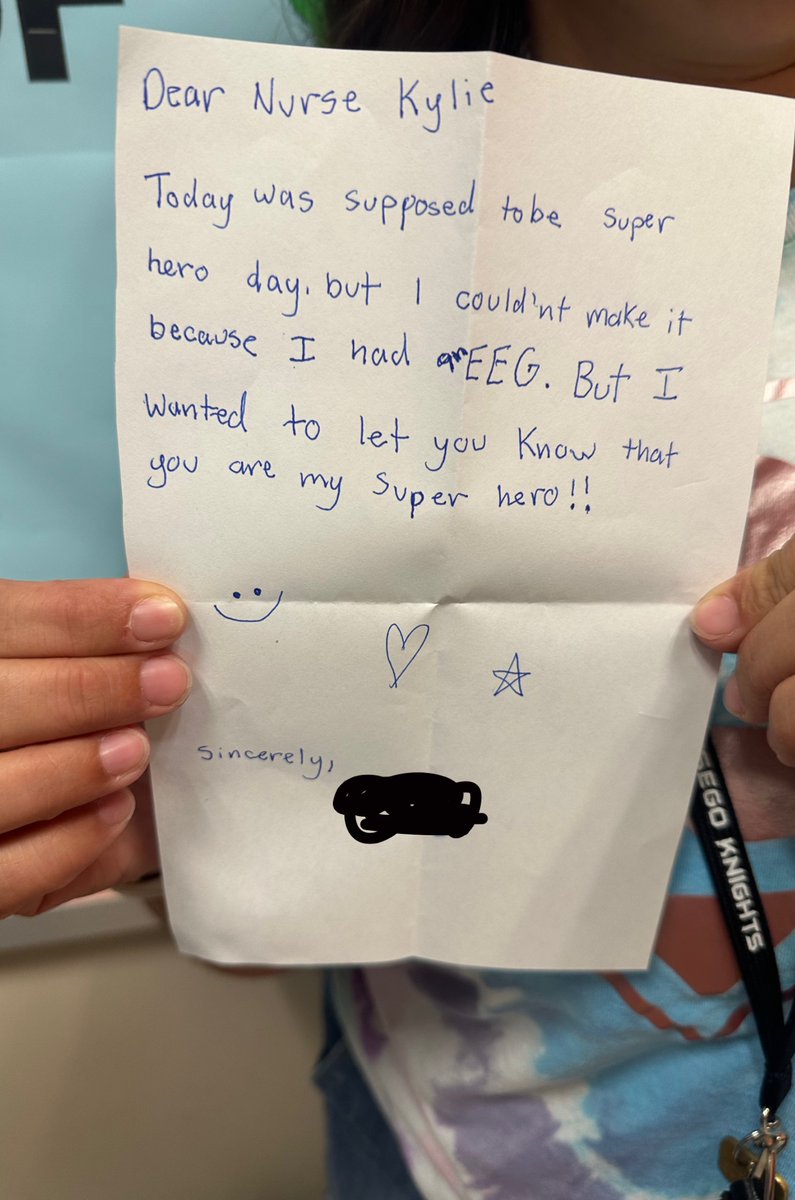 Dear Nurse Kylie
Today was supposed tobe super
hero day. but I could'nt make it
because I had an EEG. But I
wanted to let you know that
you are my super hero!!
sincerely,
EGO KNIGHTS